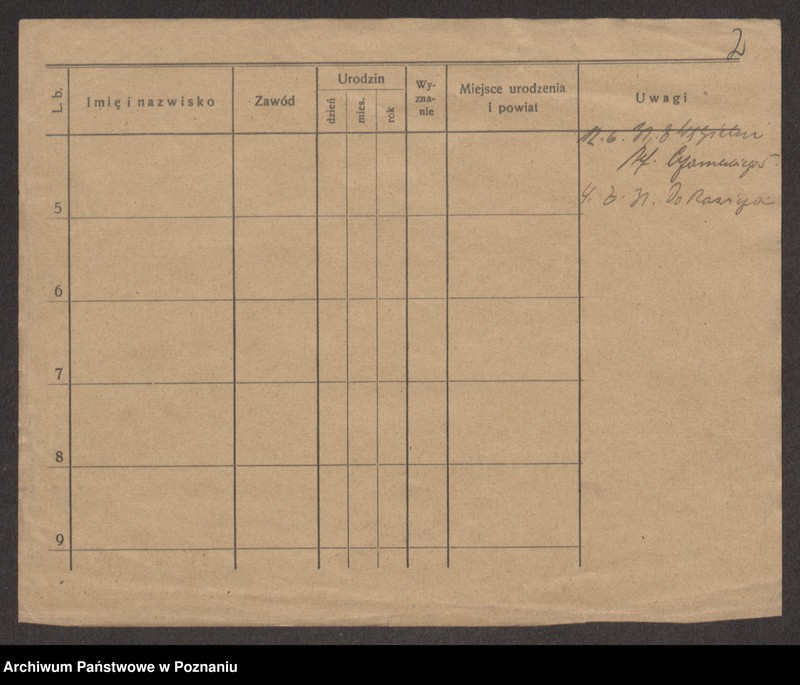 2
L. b.
Imię i nazwisko
Zawód
Urodzin
dzień
mies.
rok
Wy-
zna-
nie
Miejsce urodzenia
i powiat
Uwagi
5
6
7
8
9
Archiwum Państwowe w Poznaniu